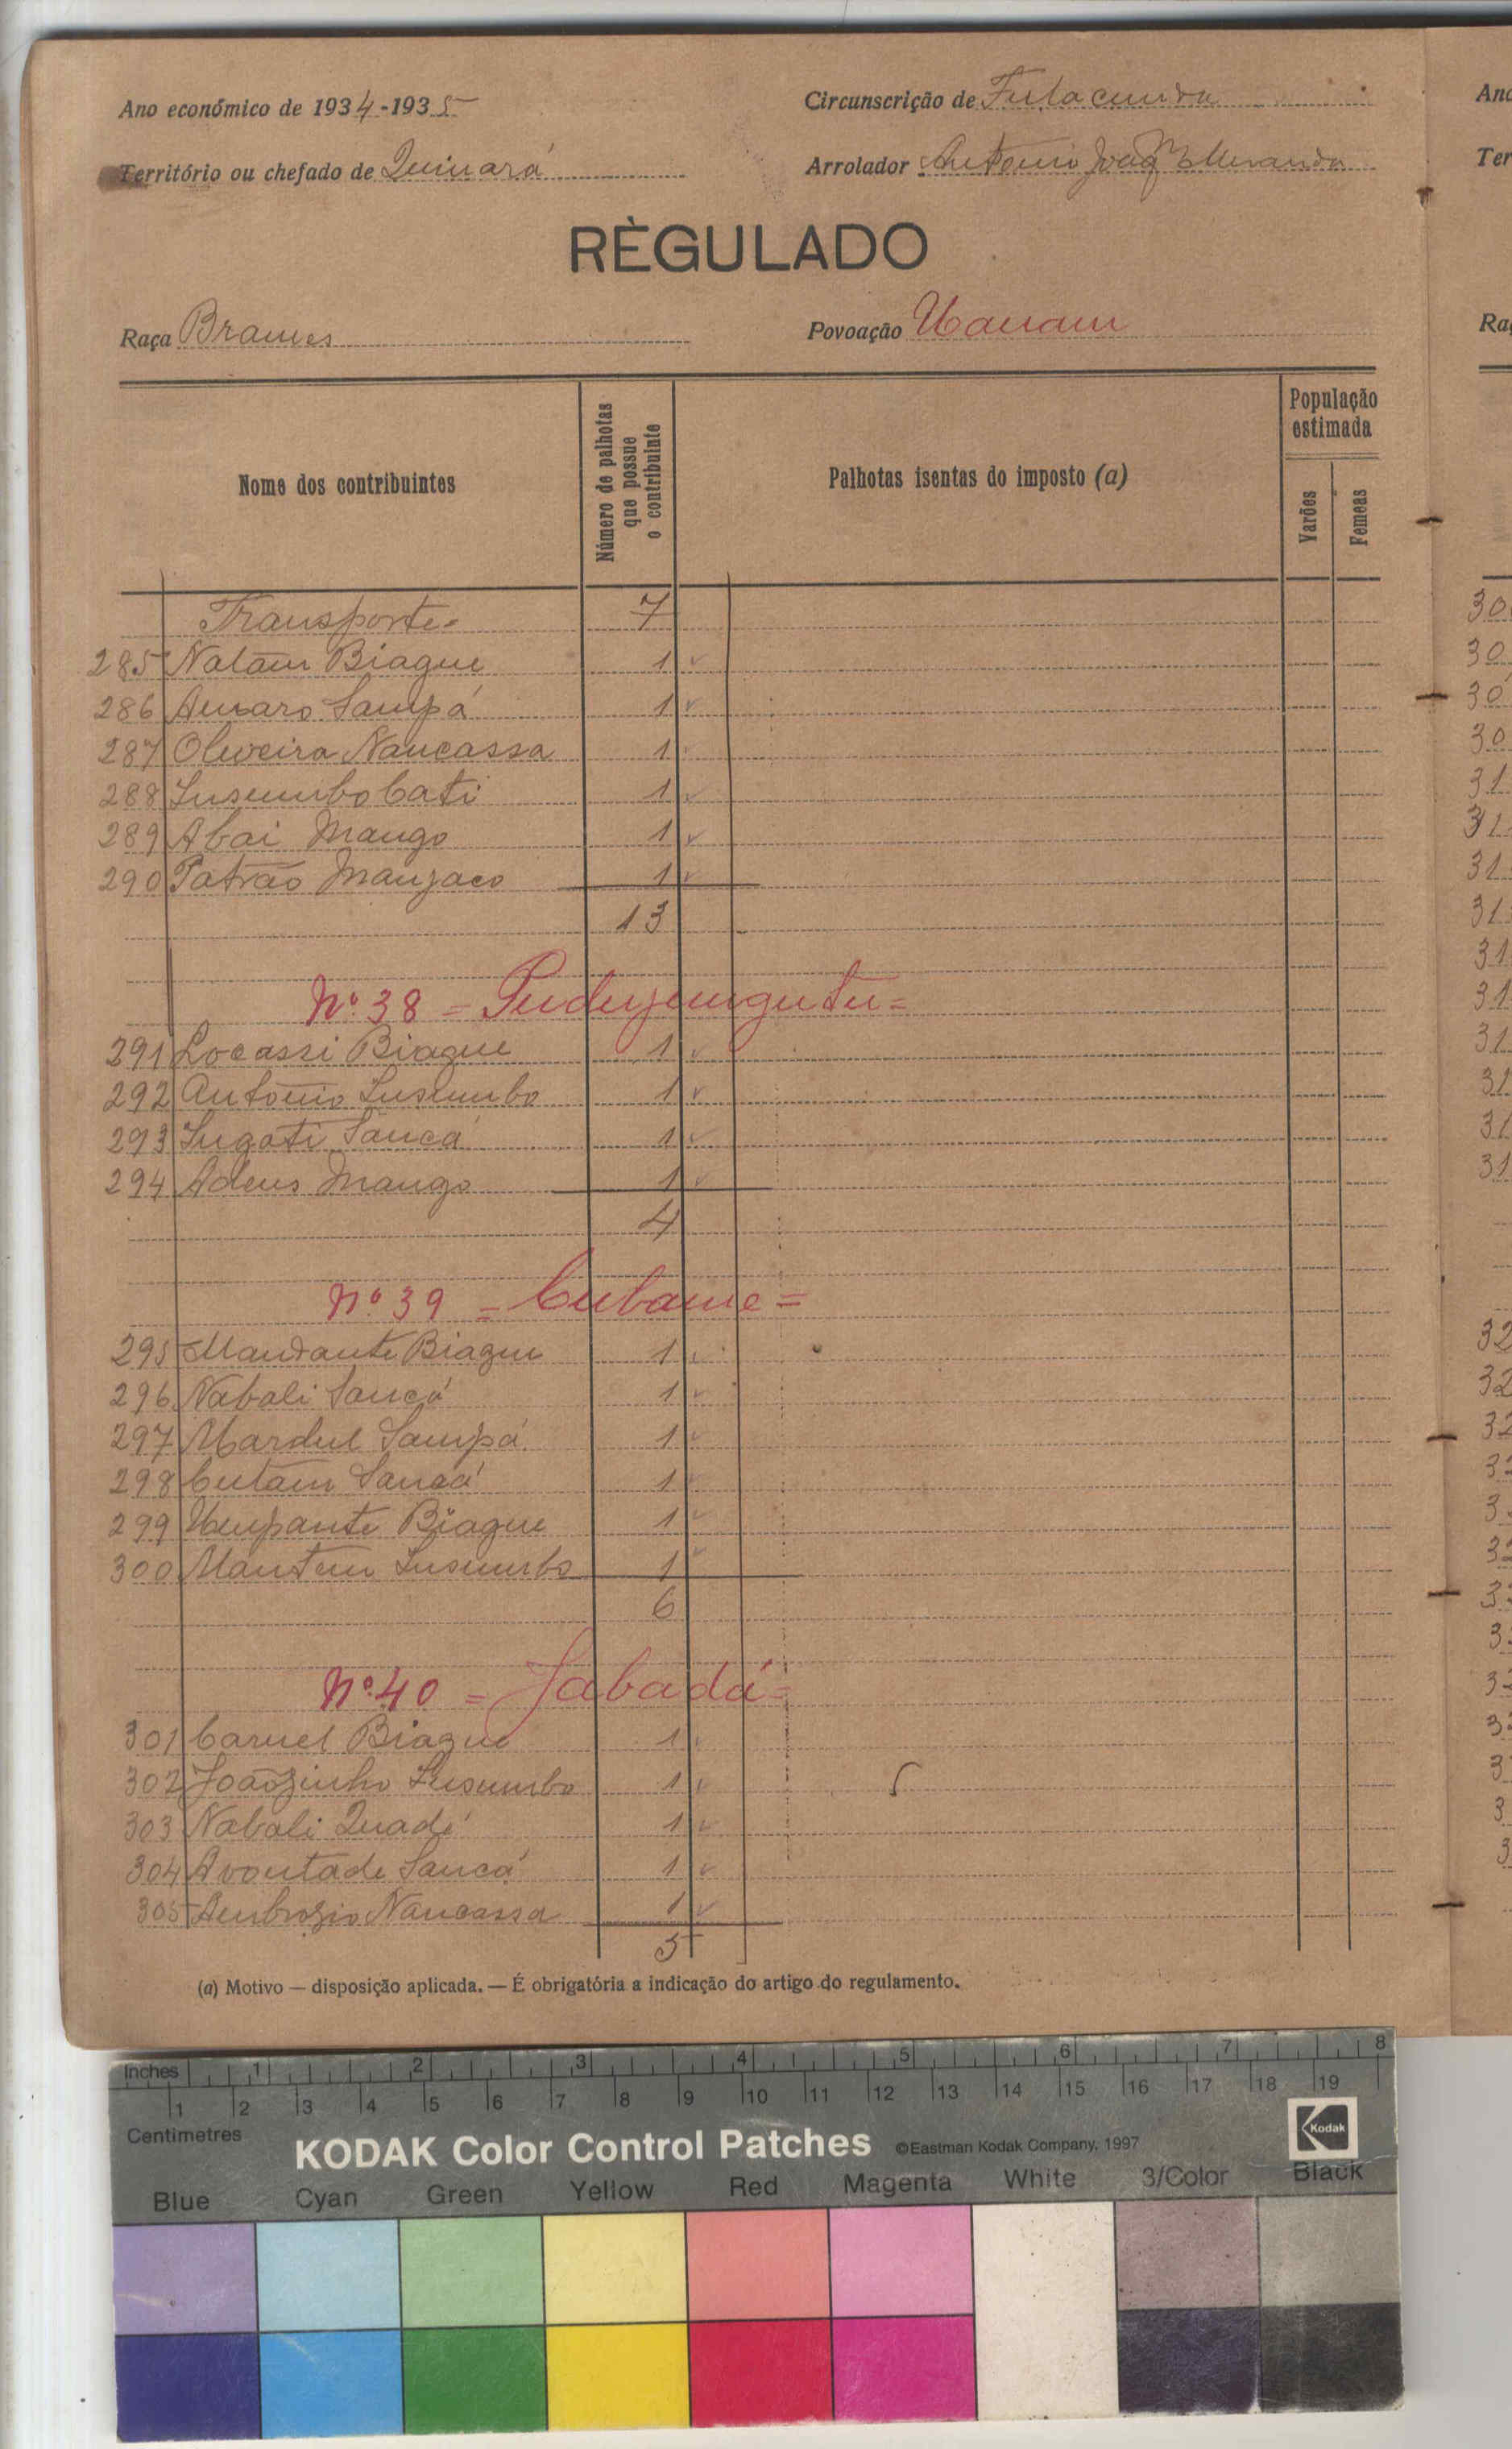 Ano económico de 1934-1935
Circunscrição de Fulacunda
Território ou chefado de Quinará
Arrolador António Joaqm Miranda
RÈGULADO
Raça Brames
Povoação Uanam
Nome dos contribuintes
Número de palhotas que possue o contribuinte
Palhotas isentas do imposto (a)
População estimada
Varões
Femeas
Transporte 7
285 Natam Biague 1
286 Amaro Sampá 1
287 Oliveira Nancassa 1
288 Insumbo Cati 1
289 Abai Mango 1
290 Patrão Manjaco 1
13
Nº 38 =
291 Locassi Biague 1
292 António Insumbo 1
293 Ingati Sancá 1
294 Adeus Mango 1
4
Nº 39 = Cubame =
295 Mandante Biague 1
296 Nabali Sancá 1
297 Mardul Sampá 1
298 Cutam Sancá 1
299 Umpante Biague 1
300 Mantem Insumbo 1
6
Nº 40 = Jabadá =
301 Caruel Biague 1
302 Joãozinho Insumbo 1
303 Nabali Quadé 1
304 Avontade Sancá 1
305 Ambrozio Nancassa 1
5
(a) Motivo — disposição aplicada. — É obrigatória a indicação do artigo do regulamento.
Inches 1 2 3 4 5 6 7 8
1 2 3 4 5 6 7 8 9 10 11 12 13 14 15 16 17 18 19
Centimetres
KODAK Color Control Patches ©Eastman Kodak Company, 1997
Kodak
Blue Cyan Green Yellow Red Magenta White 3/Color Black